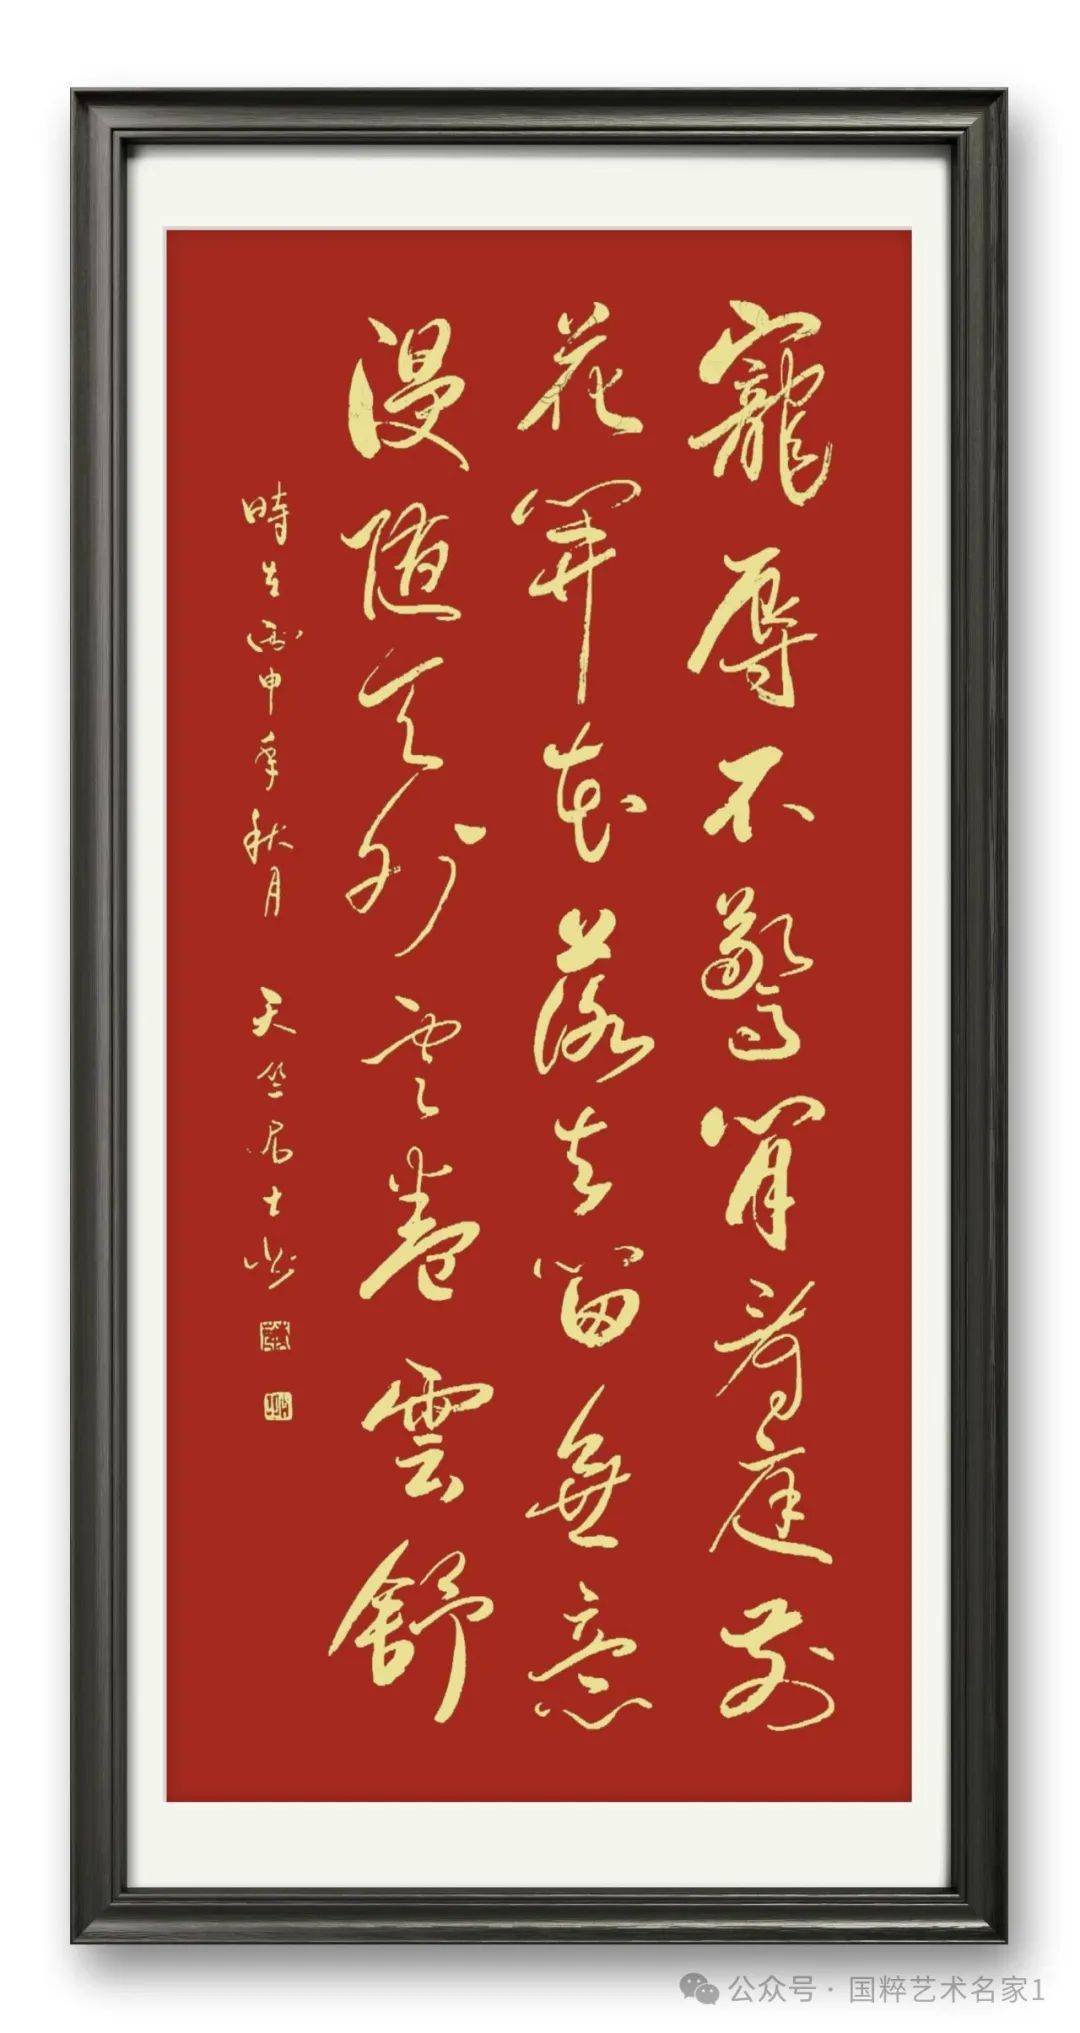 寵辱不驚閒看庭前
花開花落去留無意
漫隨天外雲卷雲舒
時在丙申年秋月 天竺居士
公众号 · 国粹艺术名家1